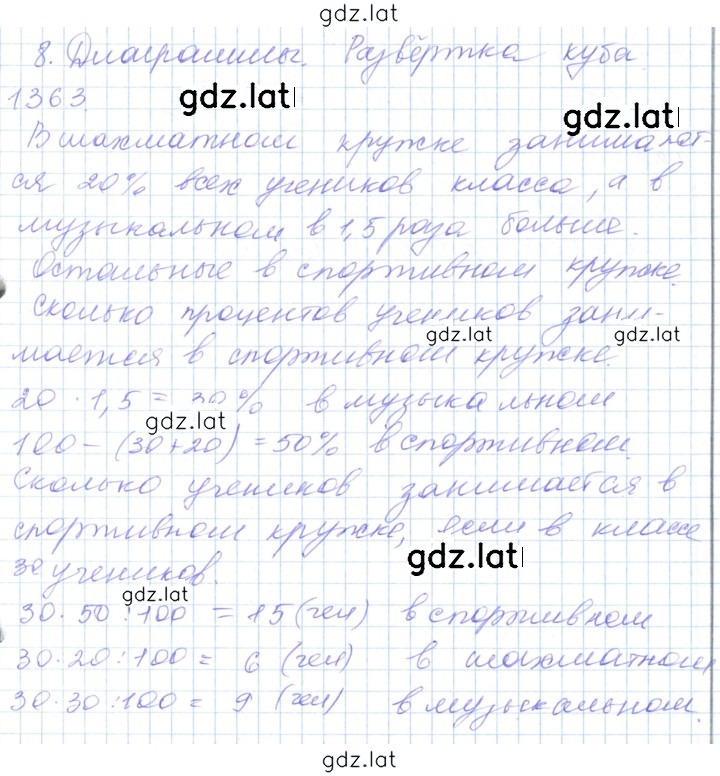 gdz.lat
8. Диаграммы. Развёртка куба
1363.
gdz.lat
gdz.lat
В шахматном кружке занимает-
ся 20% всех учеников класса, а в
музыкальном в 1,5 раза больше.
Остальные в спортивном кружке.
Сколько процентов учеников зани-
gdz.lat
gdz.lat
мается в спортивном кружке.
20 · 1,5 = 30% в музыкальном
gdz.lat
100 - (30+20) = 50% в спортивном.
Сколько учеников занимается в
спортивном кружке, если в классе
gdz.lat
30 учеников.
gdz.lat
30·50:100 = 15 (чел) в спортивном
30·20:100 = 6 (чел) в шахматном
30·30:100 = 9 (чел) в музыкальном.
gdz.lat